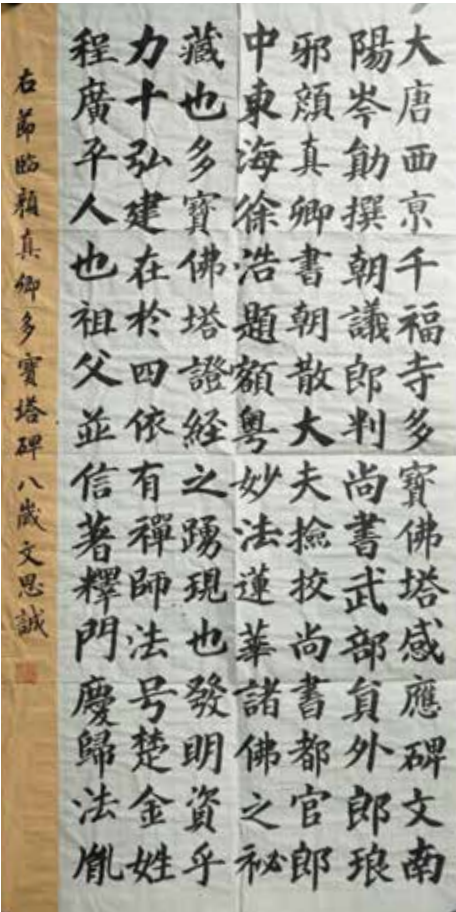 大唐西亰千福寺多寶佛塔感應碑文南
陽岑勛撰朝議郎判尚書武部貟外郎琅
邪顏真卿書朝散大夫撿挍尚書都官郎
中東海徐浩題額粵妙法蓮華諸佛之祕
藏也多寶佛塔證經之踴現也發明資乎
力十弘建在於四依有禪師法号楚金姓
程廣平人也祖父並信著釋門慶歸法胤
右節臨顏真卿多寶塔碑八歲文思誠